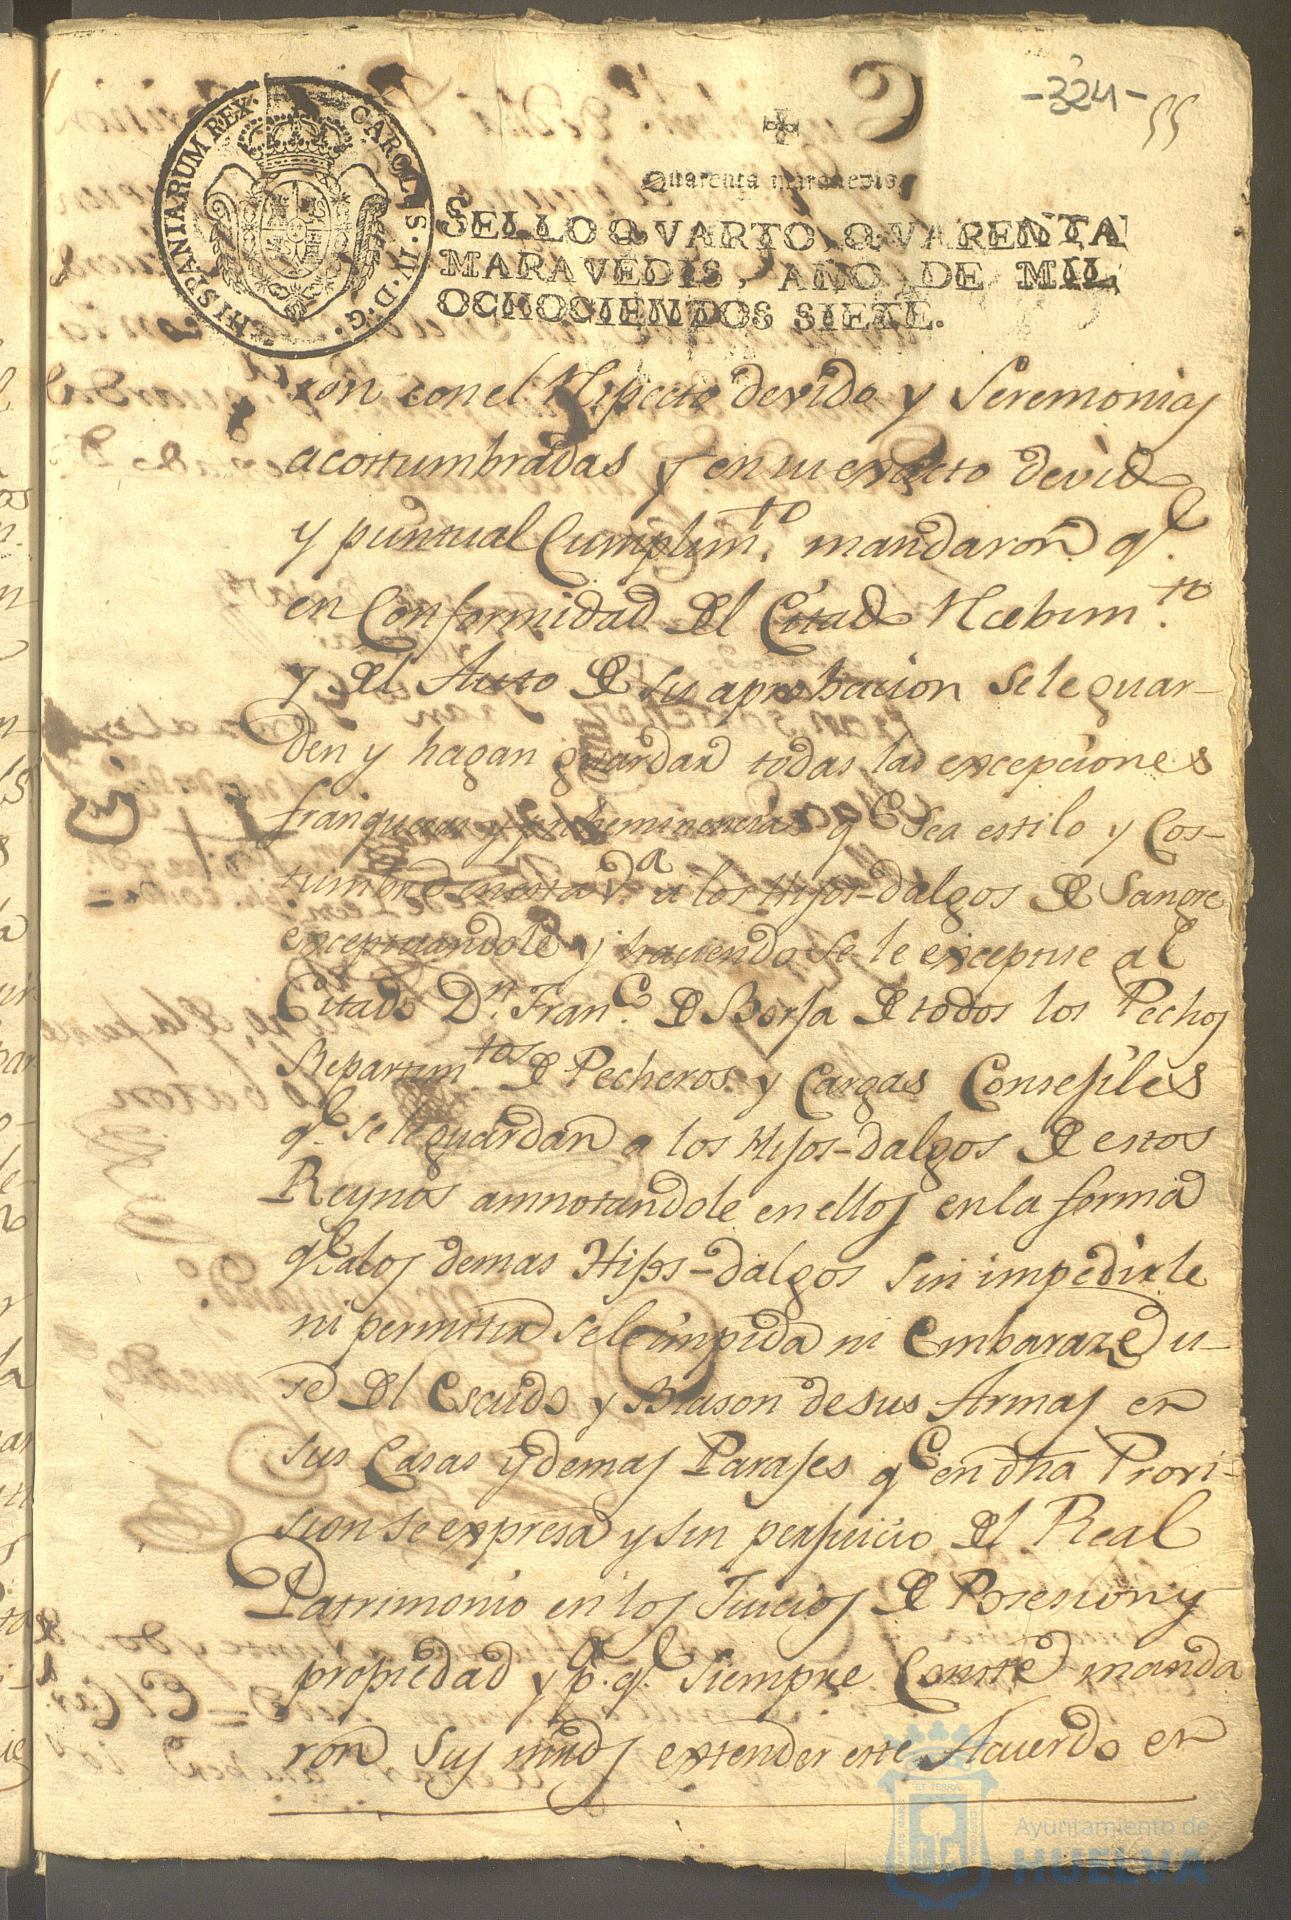 -324- 55
HISPANIARUM REX. CAROLUS. IV. D. G.
Quarenta maravedis.
SELLO QVARTO, QVARENTA
MARAVEDIS, AÑO DE MIL
OCHOCIENTOS SIETE.
ron con el Respecto devido y Seremonias
acostumbradas y en su exacto devido
y puntual Cumplimto. mandaron qe.
en Conformidad del Citado Recibimto.
y del Auto de su aprobacion se le guar-
den y hagan guardar todas las excepciones
franquezas y preheminencias qe sea estilo y Cos-
tumbre en esta Va. a los Hijos-dalgos de Sangre
exceptuandole y haciendo se le exceptue al
Citado Dn. Franco. de Borja de todos los Pechos
Repartimtos. de Pecheros y Cargas Consejiles
qe. se le guardan a los Hijos-dalgos de estos
Reynos annotandole en ellos en la forma
qe. a los demas Hijos-dalgos sin impedirle
ni permitir se le impida ni Embaraze u-
se del Escudo y Blason de sus Armas en
sus Casas y demas Parajes qe en dha Provi-
sion se expresa y sin perjuicio del Real
Patrimonio en los Juicios de Posesion y
propiedad y pa. qe. siempre Conste manda
ron Sus mrds extender este Acuerdo en
Ayuntamiento de
HUELVA